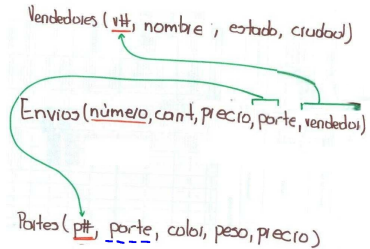 Vendedores (v#, nombre, estado, ciudad)
Envios (número, cant, precio, porte, vendedor)
Partes (p#, porte, color, peso, precio)